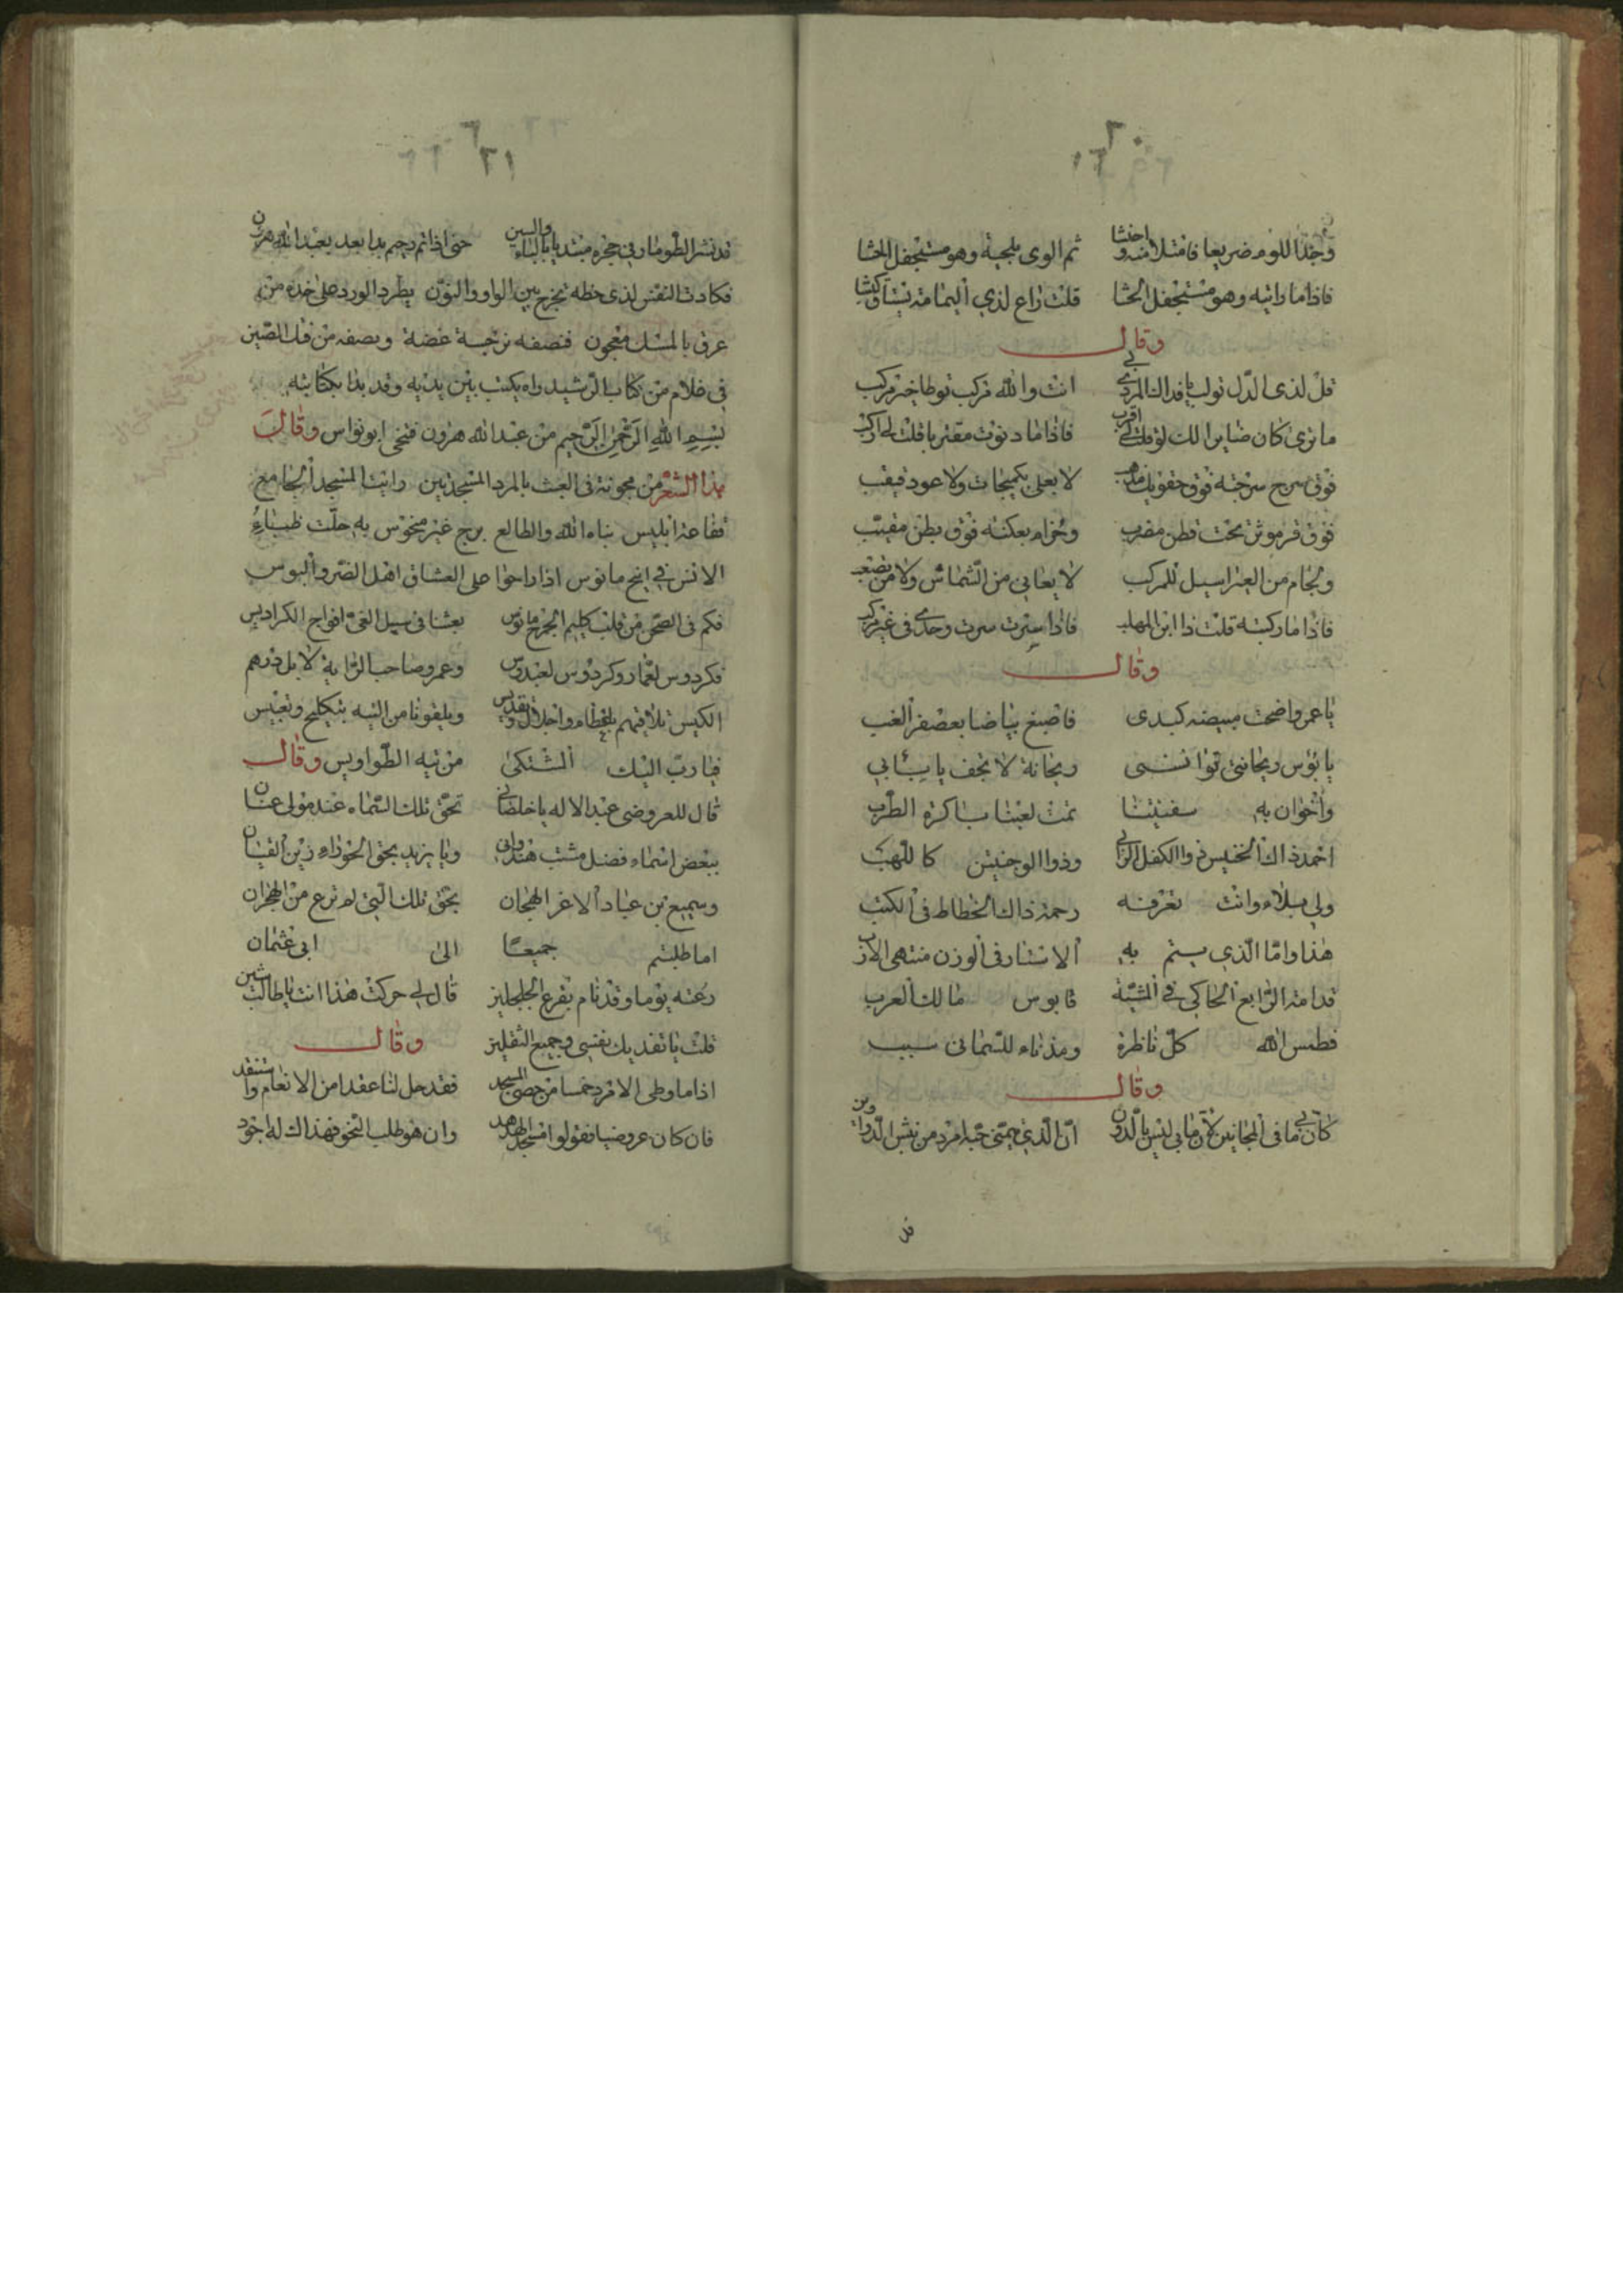 وجدا للوم ضريعا فامتلا منه واحتشا ثم الوى بلجية وهو مستجفل الحشا
فاذا ما راتيه وهو مستجفل الحشا قلت راع لذي اليمامة
وقال
قل لذى الدل توليا فداك انت والله مركب توطا خير مركب
ما نرى كان ضايرا لك لو قلت لى اقرب فاذا ما دنوت مقتربا قلت لى اركب
فوق سرج سرجته فوق حقويك لا بعلى بكميخات ولا عود قيقب
فوق قرموثن تحت قطن مضرب وحزام بعكنه فوق بطن مقبب
ولجام من العبر اسيل للمركب لا يعابى من الشماس ولا من تصعب
فاذا ما ركبته قلت ذا ابن المهلب فاذا سرت سرت وحدى فى غير مركب
وقال
يا عمر واضحت مبيضه كبدى فاصبغ بياضا بعصفر العنب
يا بوس ريحانتى توانسنى ريحانة لا تجف
واخوان به سفينتنا تمت لعبتا باكرة الطرب
احمد ذاك الخنيس ذو الكفل الرابى وذو الوجنتين كاللهب
ولى بلاء وانت تعرفه رحمة ذاك الخطاط فى الكتب
هذا واما الذي يستم به الاستار فى الوزن منتهى الارب
قدامه الرابع الحاكى فى الشبه قابوس مالك العرب
فطمس الله كل ناظرة ومذناء للشمانى سبب
وقال
كان بى ما فى المجانين لان ما بى ليس بالدون ان الذي تيمنى حبه امرد من نبش الدواوين
فن
قد نشر الطومار فى حجره مبتديا بالباء والسين حتى اذا تم رحيم بدا بعد بعبد الله هرون
فكادت النفس لذى خطه تخرج بين الواو والنون يطرد الورد على خده من
عرق بالمسك معجون فنصفه نرجسة غضة ونصفه من فلك الصين
فى غلام من كتاب الرشيد راه يكتب بين يديه وقد بدا بكتابته
بسم الله الرحمن الرحيم من عبد الله هرون فتنحى ابو نواس وقال
هذا الشعر من مجونته فى العبث بالمرد المسجديين رايت المسجد الجامع
فقاعة ابليس بناه الله والطالع برج غير منحوس به حلت ظباء
الانس فى ابيح مانوس اذا راحوا على العشاق اهل الضر والبوس
فكم فى الصحن من قلب كليم الجرح مانوس بعثنا فى سبيل الغى افواج الكراديس
فكردوس لعمار وكردوس لعبدوس وعمرو صاحب الراية لا بل درهم
الكيس تلاقيهم باعظام واجلال وتقديس ويلقونا من التيه بتكليح وتعبيس
فيا رب اليك المشتكى من تيه الطواويس وقال
قال للعروضى عبد الاله يا خلصانى تحق تلك السماء عند مولى عنان
ببعض اسماء فضل مشبب هندوانى ويا يزيد بحق الخوذاء زين القيان
وسميع بن عباد الاغر الهجان بحق تلك التى لم ترع من الهجران
اما طلبتم جميعا الى ابى عثمان
رعته يوما وقد نام بقرع الجلجلين قال لى حركت هذا انت يا طالب شين
قلت يا نفديك نفسى وجميع الثقلين وقال
اذا ما وطى الامرد خمسا من حصى المسجد فقد حل لنا عقدا من الانعام واستنفد
فان كان عروضيا فقولوا امسجد الهدهد وان هو طلب النحو فهذاك له اجود